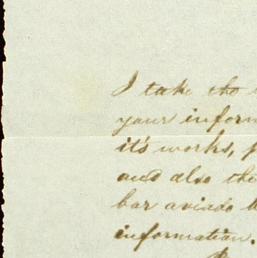 I take the
your inform
it's works, p
and also the
bar
information.